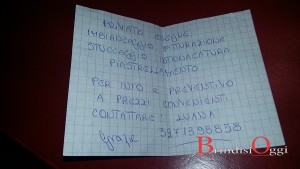 PRIVATO ESEGUE
IMBIANCAGGIO RATURAZIONE
STUCCAGGIO INTONACATURA
PIASTRELLAMENTO
PER INFO E PREVENTIVO
A PREZZI CONVENIENTI
CONTATTARE:
Grazie
BrindisiOggi